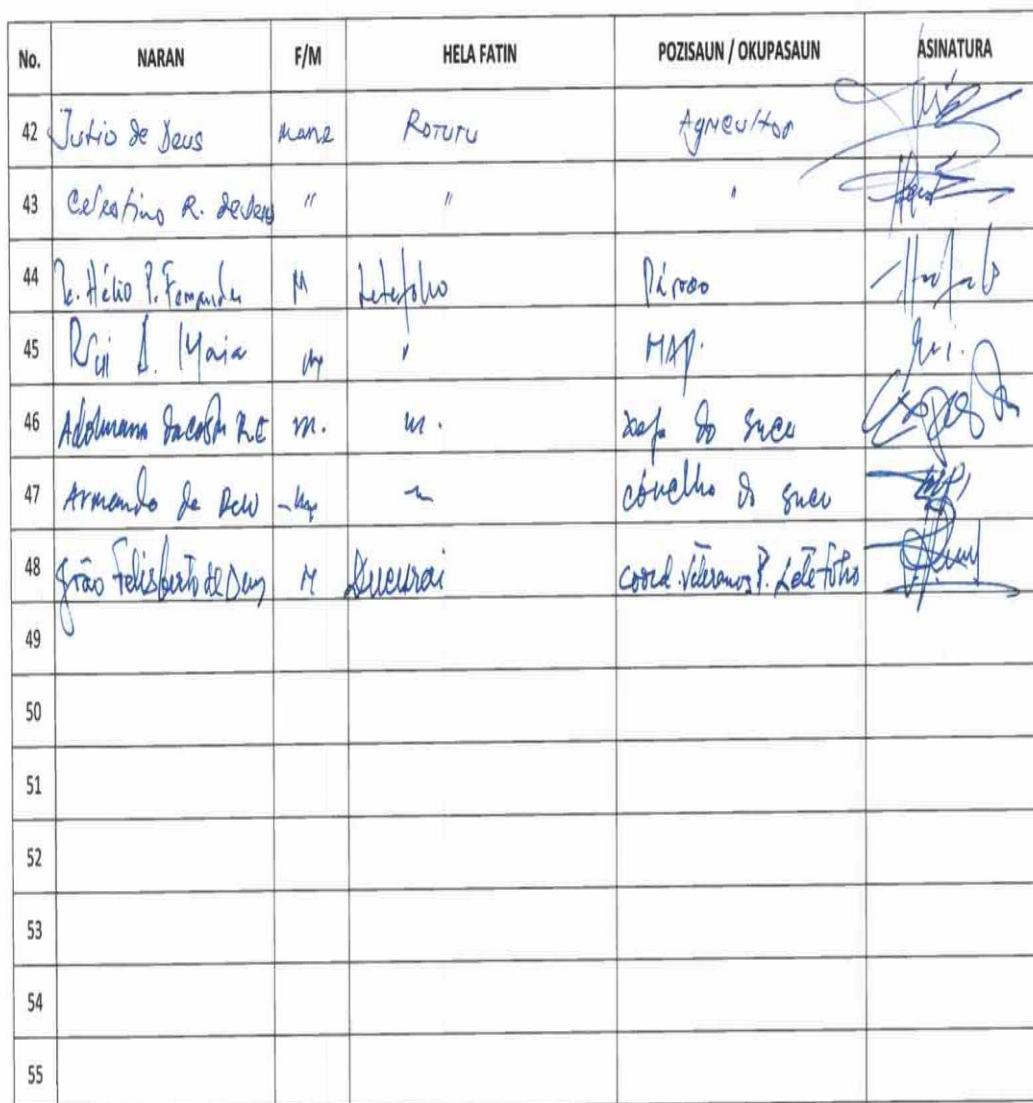 No. NARAN F/M HELA FATIN POZISAUN / OKUPASAUN ASINATURA
42 Julio de Deus Mane Roturu Agricultor
43 Celestino R. de Deus " " "
44 Pe. Hélio P. Fernandes M Letefoho Pároco
45 Rui A. Maia MAP.
46 m. do Sucu
47 Armando de Deus do Sucu
48 João Felisberto de Deus M Ducurai Coord. Veteranos P. Letefoho
49
50
51
52
53
54
55